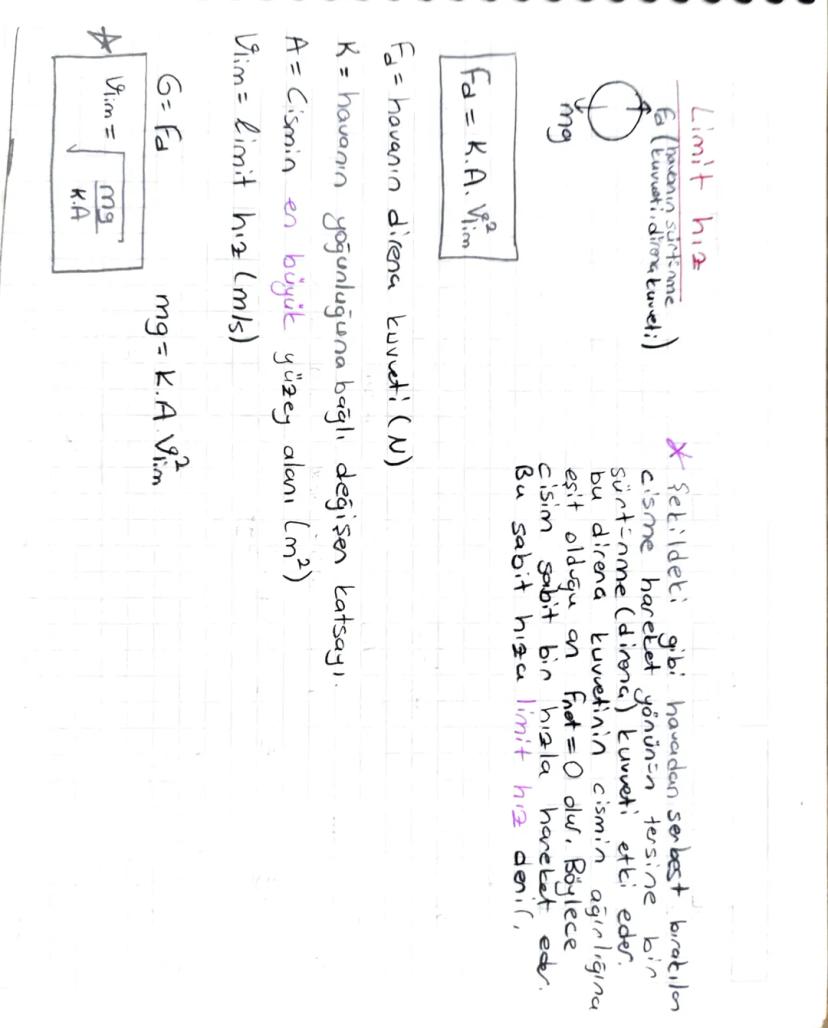 Limit hız
Fd (havanın sürtünme
kuvveti, direnç kuvveti)
mg
* Şekildeki gibi havadan serbest bırakılan
cisme hareket yönünün tersine bir
sürtünme (direnç) kuvveti etki eder.
bu direnç kuvvetinin cismin ağırlığına
eşit olduğu an Fnet = 0 olur. Böylece
cisim sabit bir hızla hareket eder.
Bu sabit hıza limit hız denir.
Fd = K.A.V²lim
Fd = havanın direnç kuvveti (N)
K = havanın yoğunluğuna bağlı değişen katsayı.
A = Cismin en büyük yüzey alanı (m²)
Vlim = limit hız (m/s)
G = Fd
mg = K.A.V²lim
Vlim = √(mg/K.A)